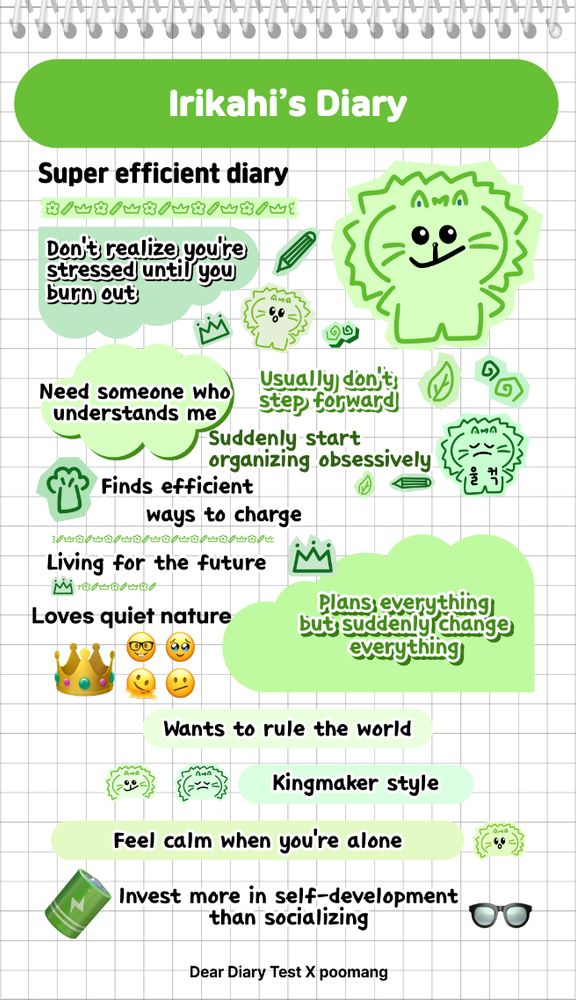 Irikahi's Diary
Super efficient diary
Don't realize you're
stressed until you
burn out
Need someone who
understands me
Usually don't
step forward
Suddenly start
organizing obsessively
울컥
Finds efficient
ways to charge
Living for the future
Loves quiet nature
Plans everything
but suddenly change
everything
Wants to rule the world
Kingmaker style
Feel calm when you're alone
Invest more in self-development
than socializing
Dear Diary Test X poomang